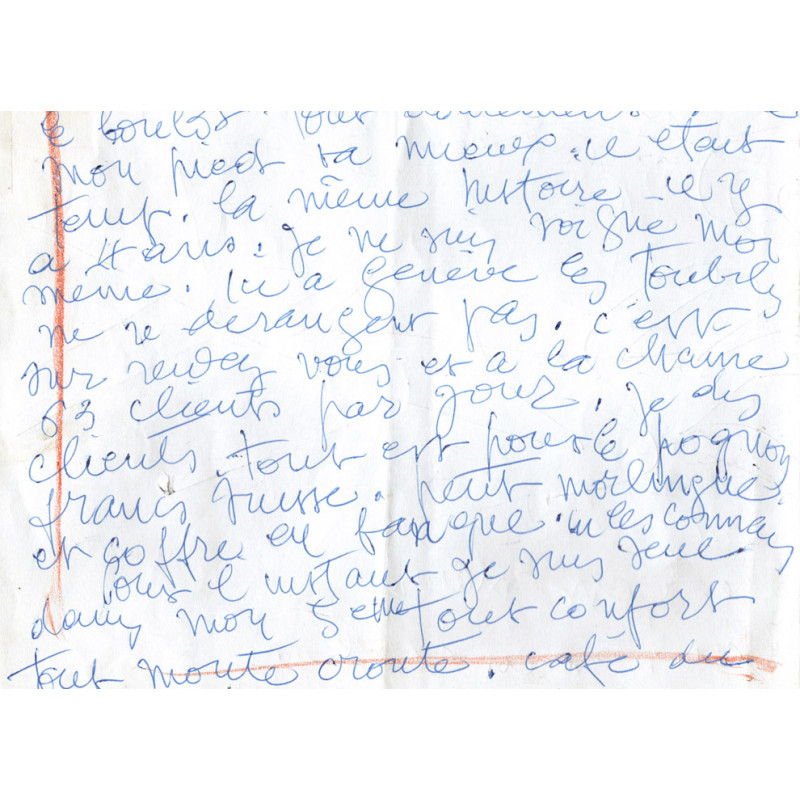 le boulot. Tout
mon pied va mieux. il etait
temps. la même histoire il y
a 4 ans. je ne suis soigné moi
même. ici a Genève les Toubibs
ne se derangent pas. c'est
sur rendez vous et a la chaine
63 clients par jour. je dis
clients. tout est pour le pognon
francs suisse. petit morlingue
et coffre en banque. tu les connais
pour l instant je suis seul.
dans mon 5eme tout confort
tout monte croute. café du